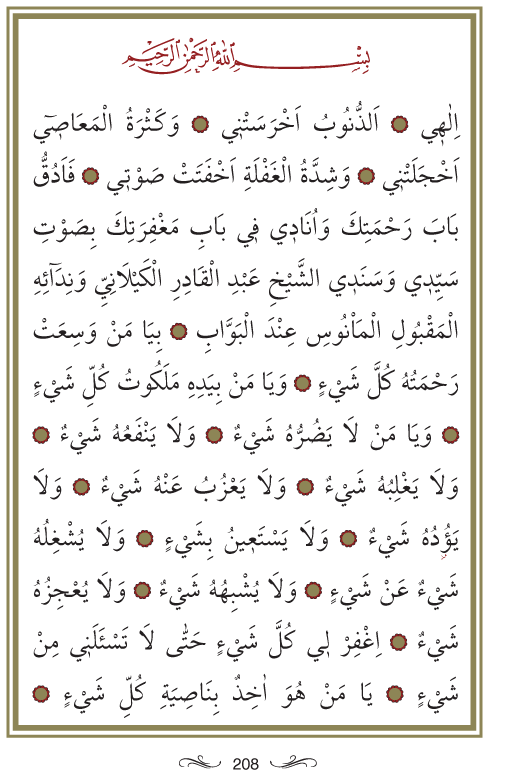 بِسْمِ اللّٰهِ الرَّحْمٰنِ الرَّحِيمِ
اِلٰهِي ۞ اَلذُّنُوبُ اَخْرَسَتْنِي ۞ وَكَثْرَةُ الْمَعَاصِيٓ
اَخْجَلَتْنِي ۞ وَشِدَّةُ الْغَفْلَةِ اَخْفَتَتْ صَوْتِي ۞ فَاَدُقُّ
بَابَ رَحْمَتِكَ وَاُنَادِي فِي بَابِ مَغْفِرَتِكَ بِصَوْتِ
سَيِّدِي وَسَنَدِي الشَّيْخِ عَبْدِ الْقَادِرِ الْكَيْلَانِيِّ وَنِدَٓائِهِ
الْمَقْبُولِ الْمَاْنُوسِ عِنْدَ الْبَوَّابِ ۞ بِيَا مَنْ وَسِعَتْ
رَحْمَتُهُ كُلَّ شَيْءٍ ۞ وَيَا مَنْ بِيَدِهِ مَلَكُوتُ كُلِّ شَيْءٍ
۞ وَيَا مَنْ لَا يَضُرُّهُ شَيْءٌ ۞ وَلَا يَنْفَعُهُ شَيْءٌ ۞
وَلَا يَغْلِبُهُ شَيْءٌ ۞ وَلَا يَعْزُبُ عَنْهُ شَيْءٌ ۞ وَلَا
يَؤُدُهُ شَيْءٌ ۞ وَلَا يَسْتَعِينُ بِشَيْءٍ ۞ وَلَا يُشْغِلُهُ
شَيْءٌ عَنْ شَيْءٍ ۞ وَلَا يُشْبِهُهُ شَيْءٌ ۞ وَلَا يُعْجِزُهُ
شَيْءٌ ۞ اِغْفِرْ لِي كُلَّ شَيْءٍ حَتّٰى لَا تَسْئَلَنِي مِنْ
شَيْءٍ ۞ يَا مَنْ هُوَ اٰخِذٌ بِنَاصِيَةِ كُلِّ شَيْءٍ ۞
208